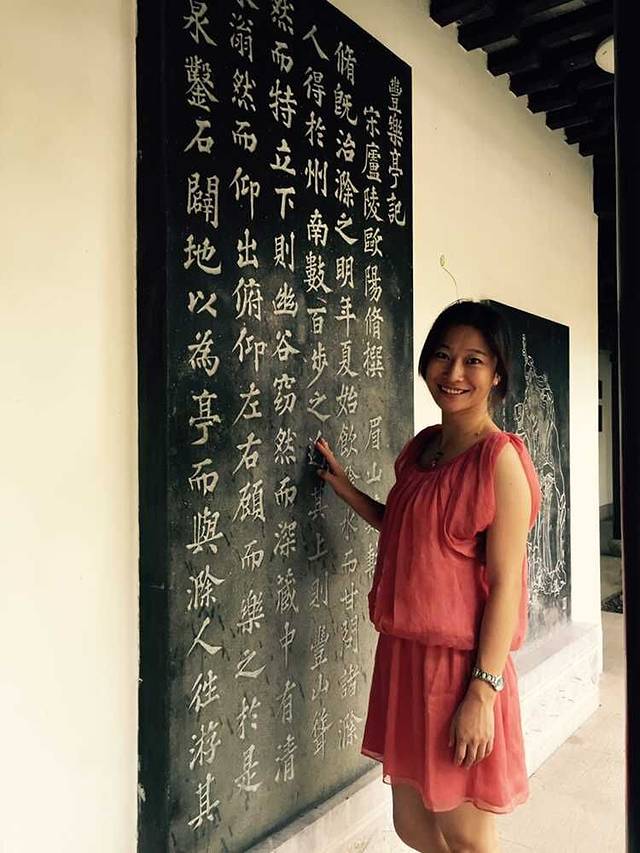 豐樂亭記
宋廬陵歐陽脩撰 眉山
脩旣治滁之明年夏始飲滁水而甘問諸滁
人得於州南數百步之近其上則豐山聳
然而特立下則幽谷窈然而深藏中有清
泉滃然而仰出俯仰左右顧而樂之於是
泉鑿石闢地以為亭而與滁人往游其